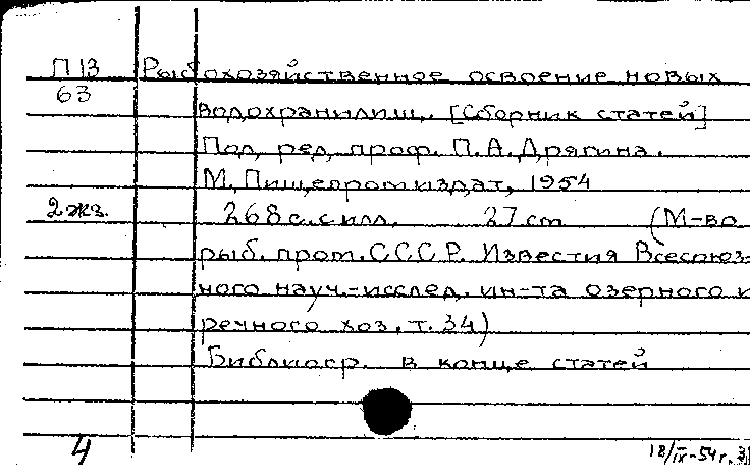 П 13 Рыбохозяйственное освоение новых
63
водохранилищ. [Сборник статей]
Под ред. проф. П.А. Дрягина.
М. Пищепромиздат, 1954
2 экз. 268 с. с илл. 27 cm (М-во
рыб. пром. СССР. Известия Всесоюз-
ного науч.-исслед. ин-та озерного и
речного хоз. т. 34)
Библиогр. в конце статей
4 18/IX-54 г.